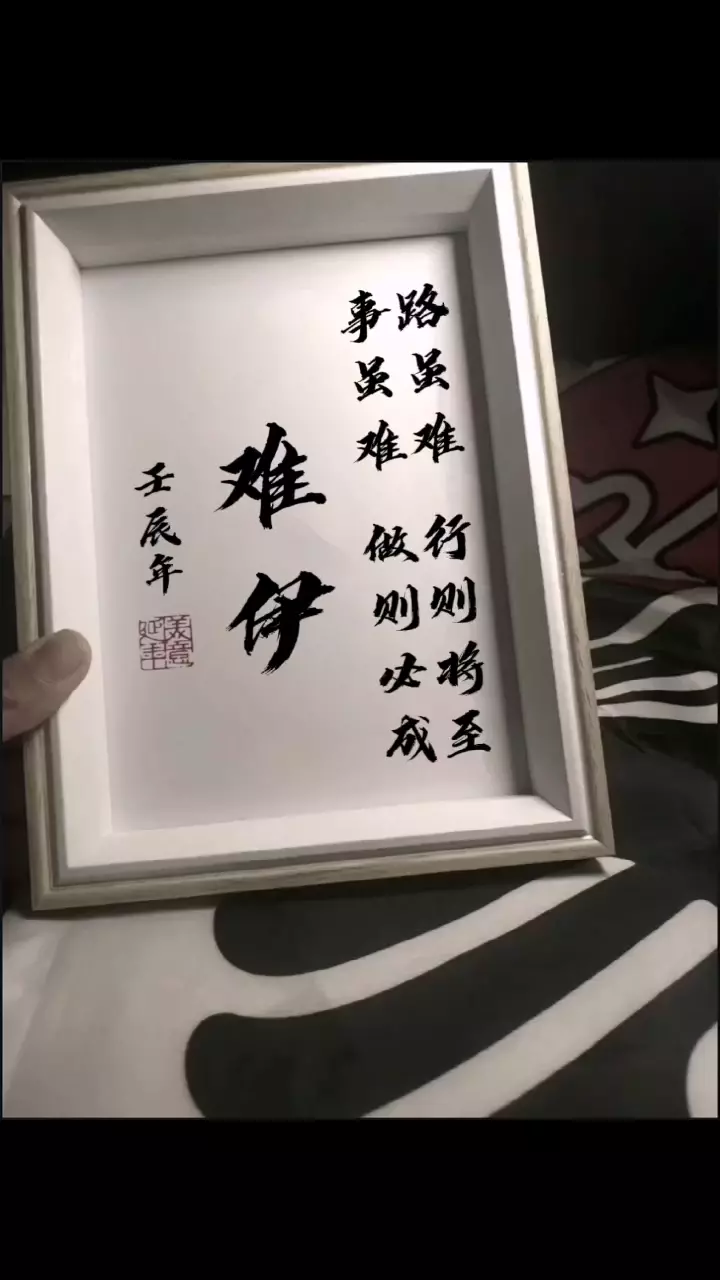 路虽难 行则将至
事虽难 做则必成
难伊
壬辰年
美意延年